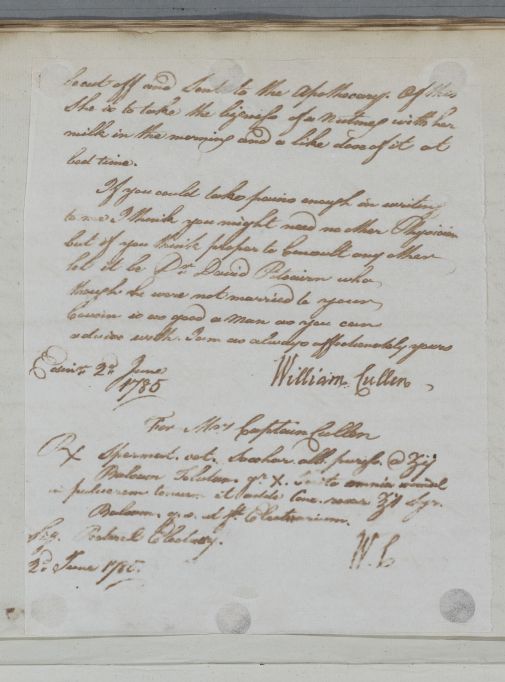 be cut off and sent to the Apothecary. Of this
She is to take the bigness of a Nutmeg with her
milk in the morning and a like dose of it at
bed time.
If you could take pains enough in writing
to me I think you might need no other Physician
but if you think proper to consult any other
let it be Dr. David Pitcairn who
though he were not married to your
Cousin is as good a man as you can
advise with. I am as always affectionately yours
Edinr. 2d. June
1785
William Cullen
For Mrs. Captain Cullen
Rx Spermat. cet. Sacchar. alb. puriss. @ ℥ij
Balsam Tolutan. gr. X. omnia simul
in pulverem adde Cons. rosar. ℥ij Syr.
Balsam. q. s. ut ft. Electuarium.
Sig. Pectoral Electuary.
2d. June 1785.
W. C